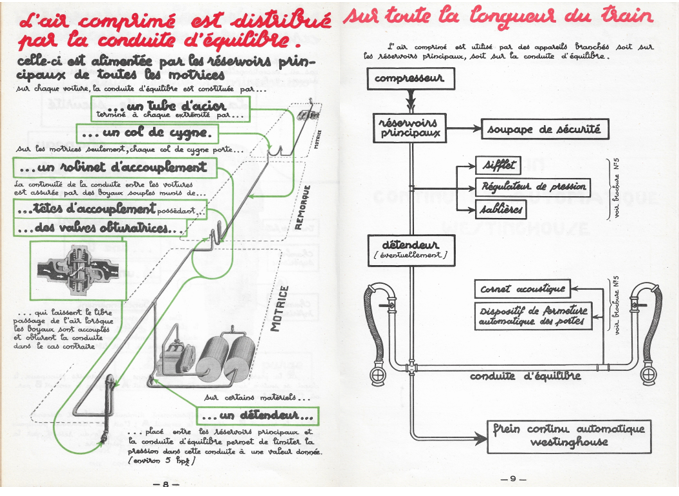 L'air comprimé est distribué
par la conduite d'équilibre.
celle-ci est alimentée par les réservoirs prin-
cipaux de toutes les motrices
sur chaque voiture, la conduite d'équilibre est constituée par...
...un tube d'acier
terminé à chaque extrémité par...
...un col de cygne.
sur les motrices seulement, chaque col de cygne porte...
...un robinet d'accouplement
la continuité de la conduite entre les voitures
est assurée par des boyaux souples munis de...
...têtes d'accouplement possédant...
...des valves obturatrices...
...qui laissent le libre
passage de l'air lorsque
les boyaux sont accouplés
et obturent la conduite
dans le cas contraire
MOTRICE
REMORQUE
MOTRICE
sur certains matériels...
...un détendeur...
...placé entre les réservoirs principaux et
la conduite d'équilibre permet de limiter la
pression dans cette conduite à une valeur donnée.
(environ 5 hpz)
- 8 -
sur toute la longueur du train
L'air comprimé est utilisé par des appareils branchés soit sur
les réservoirs principaux, soit sur la conduite d'équilibre.
compresseur
réservoirs
principaux
soupape de sécurité
sifflet
Régulateur de pression
sablières
voir brochure N°5
détendeur
(éventuellement)
Cornet acoustique
Dispositif de fermeture
automatique des portes
voir brochure N°5
conduite d'équilibre
frein continu automatique
westinghouse
- 9 -